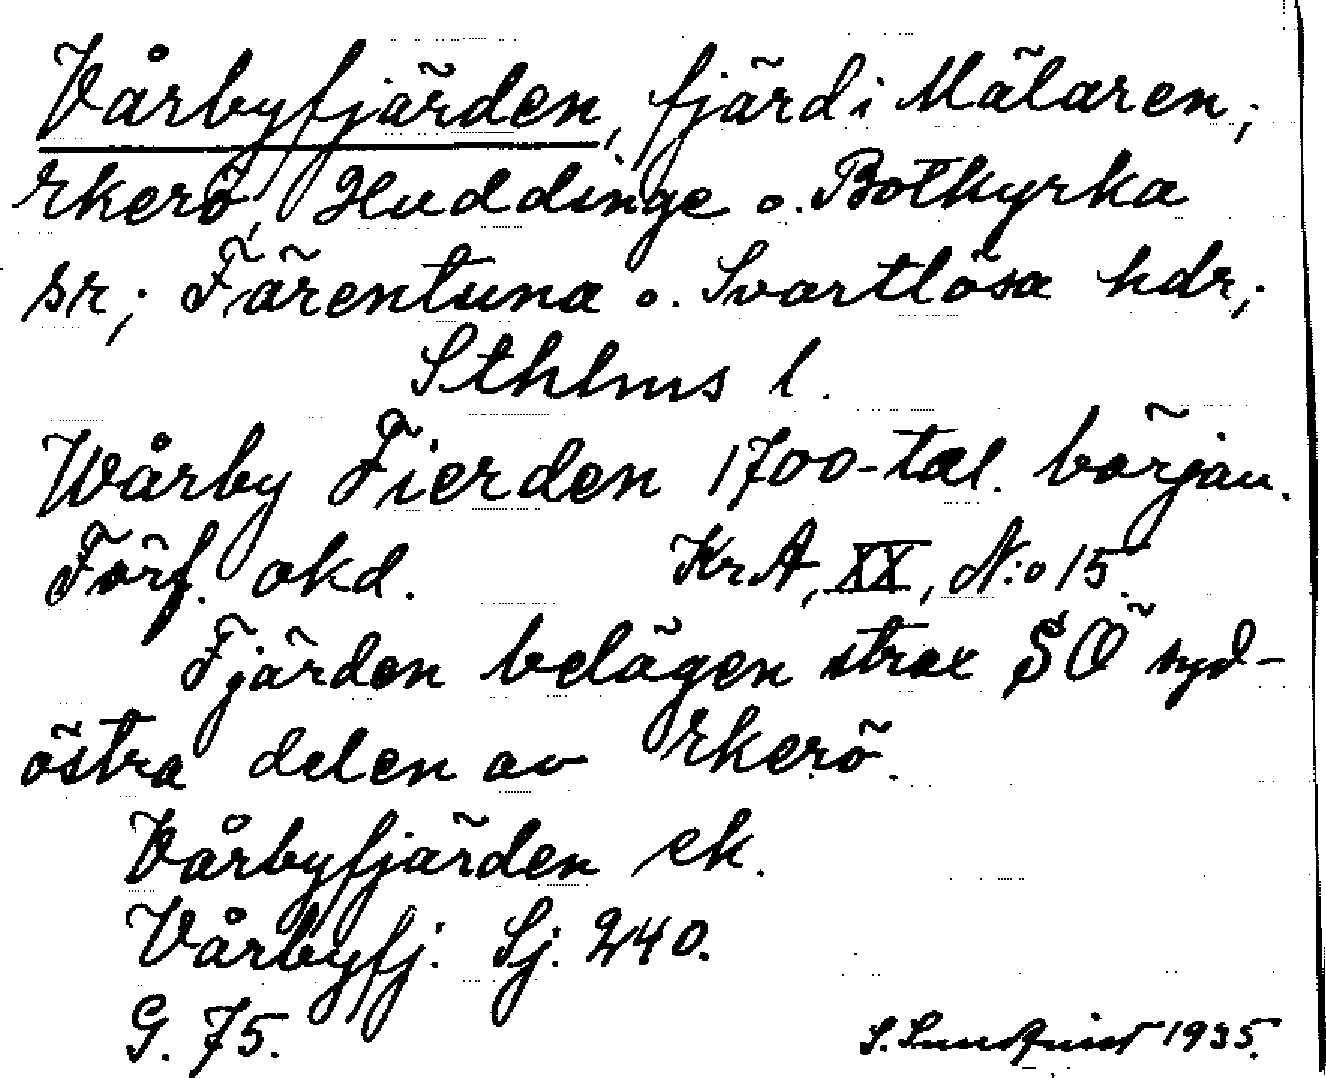 Vårbyfjärden, fjärd i Mälaren;
Ekerö, Huddinge o. Botkyrka
sr; Färentuna o. Svartlösa hdr;
Sthlms l.
Wårby Fierden 1700-tal. början.
Förf. okd. KrA, XX, N:o 15.
Fjärden belägen strax SÖ syd-
östra delen av Ekerö.
Vårbyfjärden ek.
Vårbyfj. Sj. 240.
G. 75.
S. Lundqvist 1935.